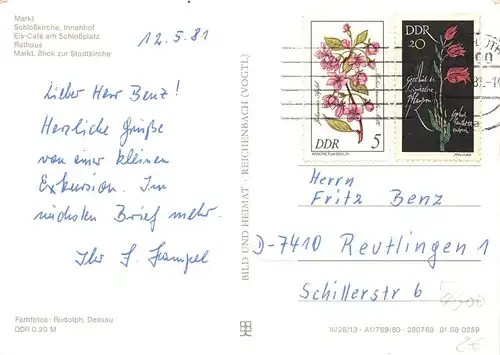 Markt
Schloßkirche, Innenhof
Eis-Café am Schloßplatz
Rathaus
Markt, Blick zur Stadtkirche
12.5.81
Lieber Herr Benz!
Herzliche Grüße
von einer kleinen
Exkursion. Im
nächsten Brief mehr.
Ihr
BILD UND HEIMAT · REICHENBACH (VOGTL.)
DDR
5
DDR
20
Geschützte
heimische
Pflanzen
Herrn
Fritz Benz
D-7410 Reutlingen 1
Schillerstr 6
Farbfotos · Rudolph, Dessau
DDR 0.20 M
III/26/13 · A1/769/80 · 280769 01 08 0259
2€